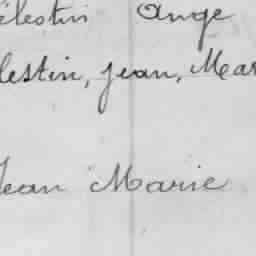 élestin Ange
lestin, Jean, Mar
Jean Marie